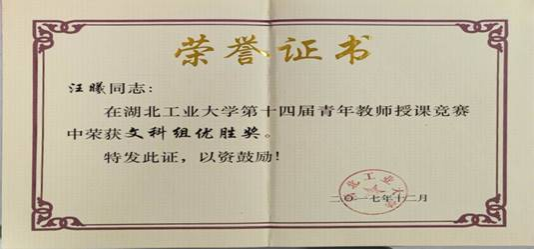 荣誉证书
汪曦同志：
在湖北工业大学第十四届青年教师授课竞赛
中荣获文科组优胜奖。
特发此证，以资鼓励！
湖北工业大学
二〇一七年十二月